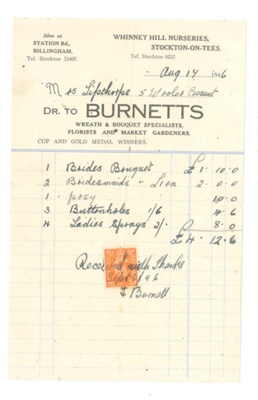 Also at
STATION Rd,
BILLINGHAM.
Tel. Stockton 53407.
WHINNEY HILL NURSERIES,
STOCKTON-ON-TEES.
Tel. Stockton 6237.
Aug 14 1946
Mrs Lipthorpe 5
DR. TO BURNETTS
WREATH & BOUQUET SPECIALISTS,
FLORISTS AND MARKET GARDENERS.
CUP AND GOLD MEDAL WINNERS.
1 Brides Bouquet £1 . 10 . 0
2 Bridesmaids' " £1 ea 2 . 0 . 0
1 posy 10 . 0
3 Buttonholes 1/6 4 . 6
4 Ladies Sprays 2/- 8 . 0
£4 . 12 . 6
Received with Thanks
Burnett